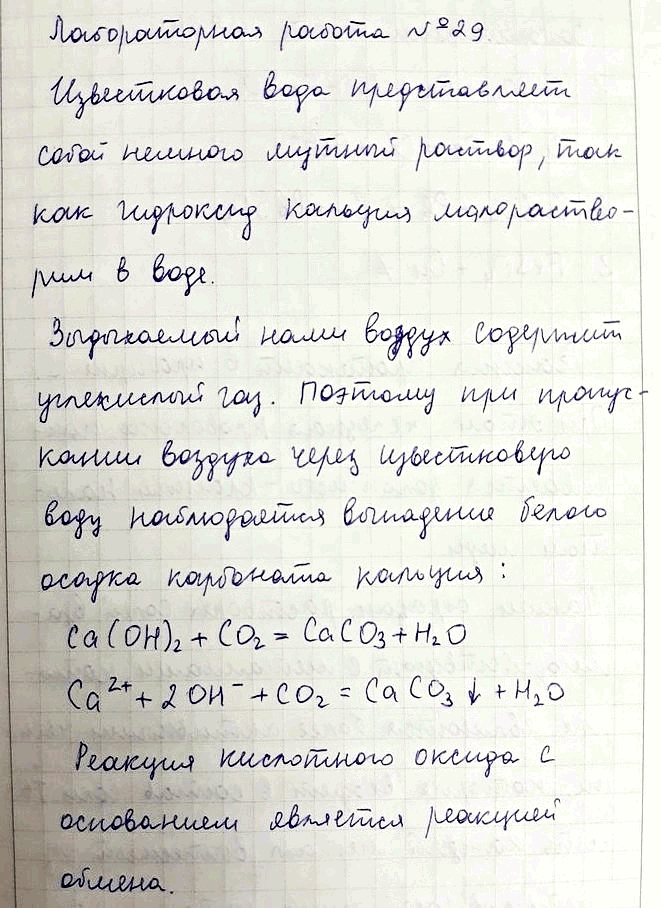 Лабораторная работа №29.
Известковая вода представляет
собой немного мутный раствор, так
как гидроксид кальция малораство-
рим в воде.
Выдыхаемый нами воздух содержит
углекислый газ. Поэтому при пропус-
кании воздуха через известковую
воду наблюдается выпадение белого
осадка карбоната кальция:
Ca(OH)₂ + CO₂ = CaCO₃ + H₂O
Ca²⁺ + 2OH⁻ + CO₂ = CaCO₃↓ + H₂O
Реакция кислотного оксида с
основанием является реакцией
обмена.